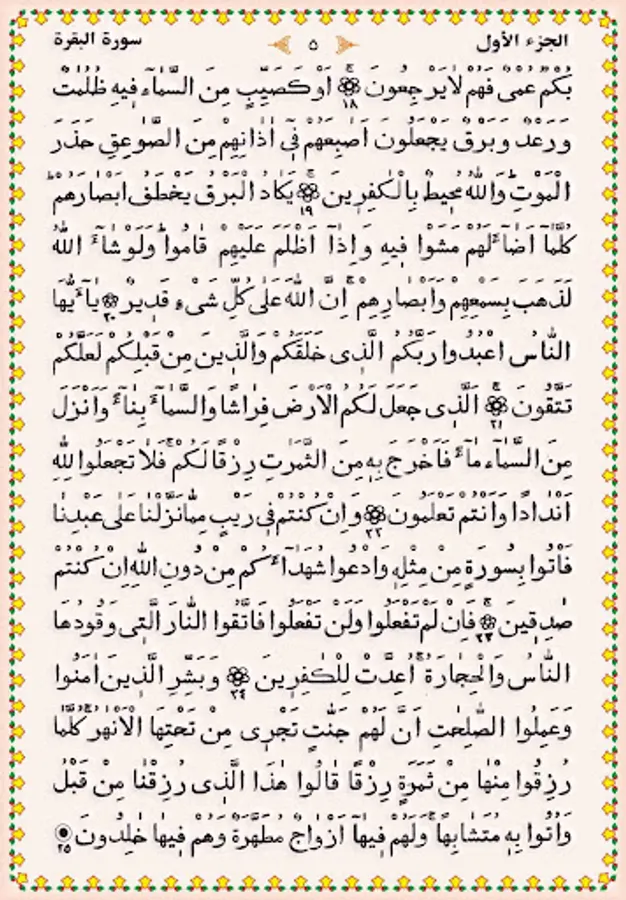 الجزء الأول ٥ سورة البقرة
بُكْمٌ عُمْىٌ فَهُمْ لَا يَرْجِعُونَ ۱۸ اَوْ كَصَيِّبٍ مِنَ السَّمَآءِ فِيهِ ظُلُمَاتٌ
وَرَعْدٌ وَبَرْقٌ يَجْعَلُونَ اَصَابِعَهُمْ فِىٓ اٰذَانِهِمْ مِنَ الصَّوَاعِقِ حَذَرَ
الْمَوْتِ وَاللّٰهُ مُحِيطٌ بِالْكَافِرِينَ ۱۹ يَكَادُ الْبَرْقُ يَخْطَفُ اَبْصَارَهُمْ
كُلَّمَآ اَضَآءَ لَهُمْ مَشَوْا فِيهِ وَاِذَآ اَظْلَمَ عَلَيْهِمْ قَامُوا وَلَوْ شَآءَ اللّٰهُ
لَذَهَبَ بِسَمْعِهِمْ وَاَبْصَارِهِمْ اِنَّ اللّٰهَ عَلٰى كُلِّ شَىْءٍ قَدِيرٌ ۲۰ يَآ اَيُّهَا
النَّاسُ اعْبُدُوا رَبَّكُمُ الَّذِى خَلَقَكُمْ وَالَّذِينَ مِنْ قَبْلِكُمْ لَعَلَّكُمْ
تَتَّقُونَ ۲۱ اَلَّذِى جَعَلَ لَكُمُ الْاَرْضَ فِرَاشًا وَالسَّمَآءَ بِنَآءً وَاَنْزَلَ
مِنَ السَّمَآءِ مَآءً فَاَخْرَجَ بِهِ مِنَ الثَّمَرَاتِ رِزْقًا لَكُمْ فَلَا تَجْعَلُوا لِلّٰهِ
اَنْدَادًا وَاَنْتُمْ تَعْلَمُونَ ۲۲ وَاِنْ كُنْتُمْ فِى رَيْبٍ مِمَّا نَزَّلْنَا عَلٰى عَبْدِنَا
فَاْتُوا بِسُورَةٍ مِنْ مِثْلِهِ وَادْعُوا شُهَدَآءَكُمْ مِنْ دُونِ اللّٰهِ اِنْ كُنْتُمْ
صَادِقِينَ ۲۳ فَاِنْ لَمْ تَفْعَلُوا وَلَنْ تَفْعَلُوا فَاتَّقُوا النَّارَ الَّتِى وَقُودُهَا
النَّاسُ وَالْحِجَارَةُ اُعِدَّتْ لِلْكَافِرِينَ ۲٤ وَبَشِّرِ الَّذِينَ اٰمَنُوا
وَعَمِلُوا الصَّالِحَاتِ اَنَّ لَهُمْ جَنَّاتٍ تَجْرِى مِنْ تَحْتِهَا الْاَنْهَارُ كُلَّمَا
رُزِقُوا مِنْهَا مِنْ ثَمَرَةٍ رِزْقًا قَالُوا هٰذَا الَّذِى رُزِقْنَا مِنْ قَبْلُ
وَاُتُوا بِهِ مُتَشَابِهًا وَلَهُمْ فِيهَآ اَزْوَاجٌ مُطَهَّرَةٌ وَهُمْ فِيهَا خَالِدُونَ ۲٥